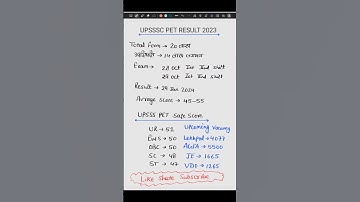 UPSSSC PET RESULT 2023
Total form → 20 लाख
उपस्थिति → 14 लाख लगभग
Exam → 28 oct Ist IInd shift
29 oct Ist IInd shift
Result → 29 Jan 2024
Avrage score → 45-55
UPSSS PET Safe Score
UR → 51
EWS → 50
OBC → 50
SC → 48
ST → 47
Upcoming Vacancy
Lekhpal → 4077
AGTA → 5500
JE → 1665
VDO → 1265
Like Share Subscribe